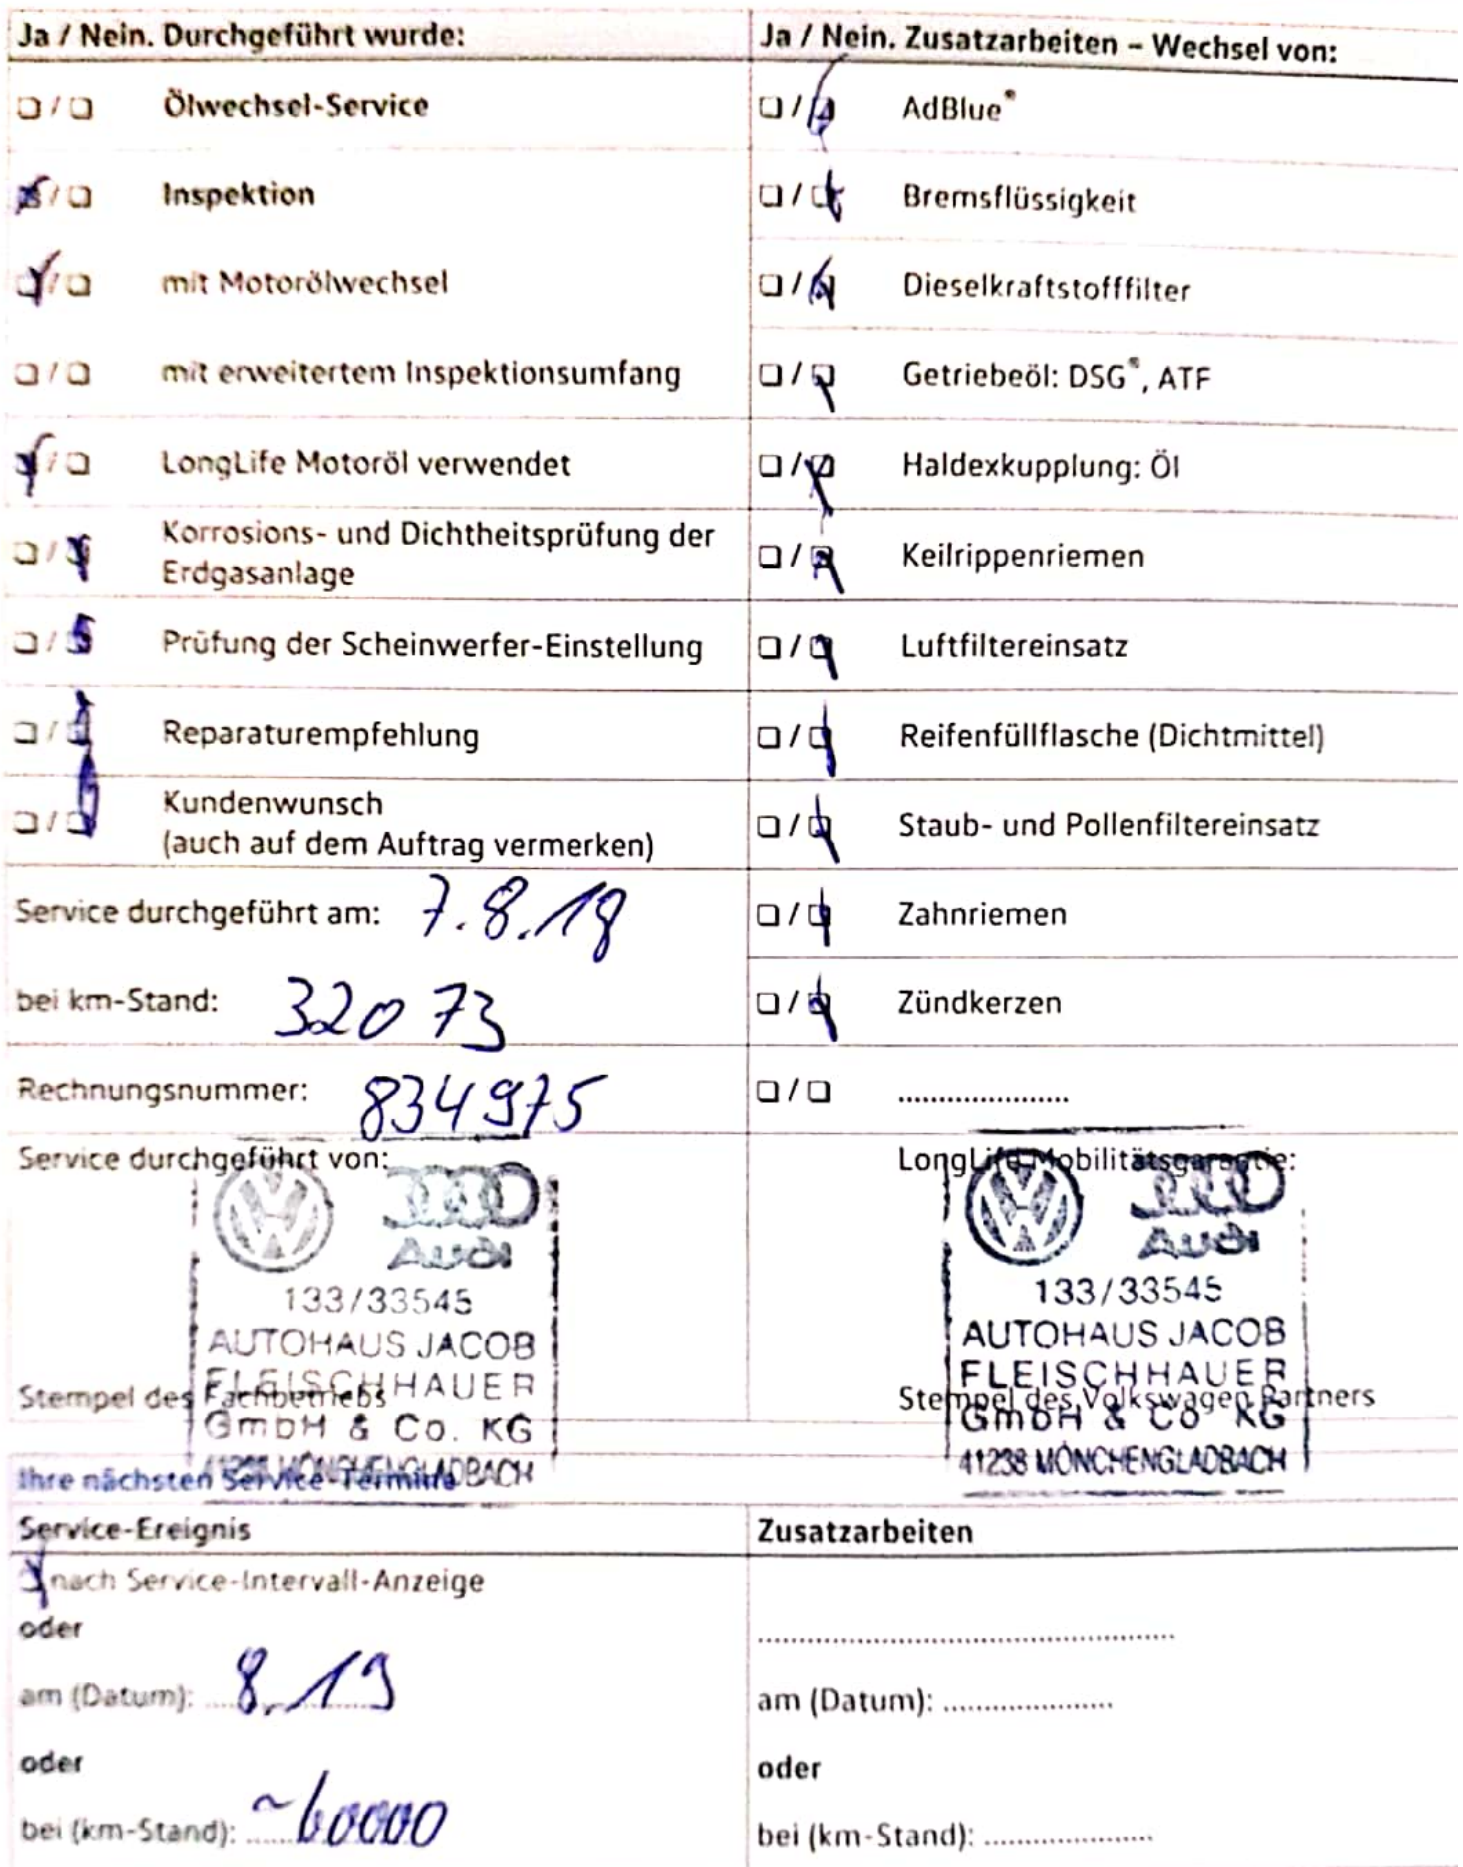 Ja / Nein. Durchgeführt wurde:
Ölwechsel-Service
Inspektion
mit Motorölwechsel
mit erweitertem Inspektionsumfang
LongLife Motoröl verwendet
Korrosions- und Dichtheitsprüfung der
Erdgasanlage
Prüfung der Scheinwerfer-Einstellung
Reparaturempfehlung
Kundenwunsch
(auch auf dem Auftrag vermerken)
Service durchgeführt am: 7.8.18
bei km-Stand: 32073
Rechnungsnummer: 834975
Service durchgeführt von:
Audi
133/33545
AUTOHAUS JACOB
FLEISCHHAUER
Stempel des Fachbetriebs
GmbH & Co. KG
41238 MÖNCHENGLADBACH
Ja / Nein. Zusatzarbeiten – Wechsel von:
AdBlue®
Bremsflüssigkeit
Dieselkraftstofffilter
Getriebeöl: DSG®, ATF
Haldexkupplung: Öl
Keilrippenriemen
Luftfiltereinsatz
Reifenfüllflasche (Dichtmittel)
Staub- und Pollenfiltereinsatz
Zahnriemen
Zündkerzen
....................
LongLife Mobilitätsgarantie:
Audi
133/33545
AUTOHAUS JACOB
FLEISCHHAUER
Stempel des Volkswagen Partners
GmbH & Co KG
41238 MÖNCHENGLADBACH
Ihre nächsten Service-Termine
Service-Ereignis
nach Service-Intervall-Anzeige
oder
am (Datum): 8.19
oder
bei (km-Stand): ~60000
Zusatzarbeiten
am (Datum): ....................
oder
bei (km-Stand): ....................